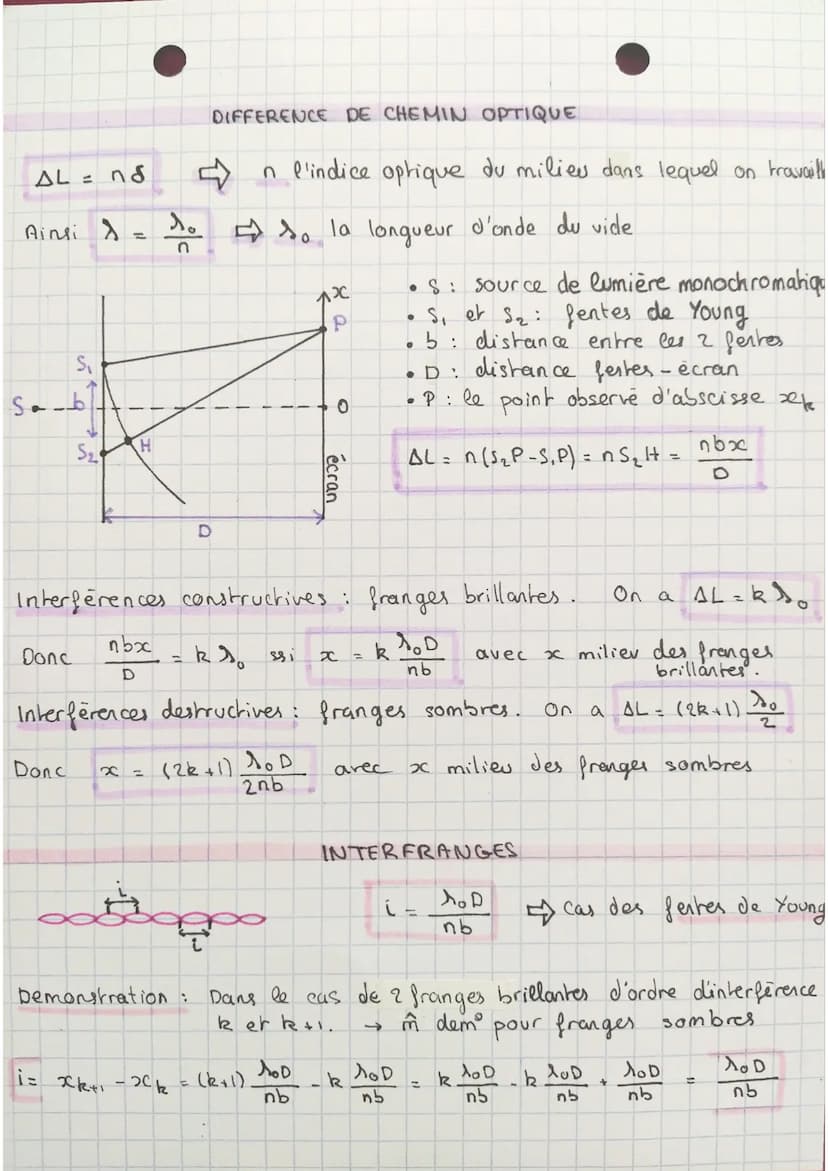 DIFFERENCE DE CHEMIN OPTIQUE
ΔL = nδ ⇨ n l'indice optique du milieu dans lequel on travaill
Ainsi λ = λ₀/n ⇨ λ₀ la longueur d'onde du vide
x
P
S₁
S
b
O
S₂
H
écran
D
• S : source de lumière monochromatiqu
• S₁ et S₂ : fentes de Young
• b : distance entre les 2 fentes
• D : distance fentes - écran
• P : le point observé d'abscisse xₖ
ΔL = n(S₂P - S₁P) = n S₂H = nbx/D
Interférences constructives : franges brillantes. On a ΔL = k λ₀
Donc nbx/D = k λ₀ ssi x = k λ₀D/nb avec x milieu des franges
brillantes.
Interférences destructives : franges sombres. On a ΔL = (2k+1) λ₀/2
Donc x = (2k+1) λ₀D/2nb avec x milieu des franges sombres
INTERFRANGES
i
i
i = λ₀D/nb ⇨ Cas des fentes de Young
Demonstration : Dans le cas de 2 franges brillantes d'ordre d'interférence
k et k+1. → m̂ dem° pour franges sombres
i = xₖ₊₁ - xₖ = (k+1) λ₀D/nb - k λ₀D/nb = k λ₀D/nb - k λ₀D/nb + λ₀D/nb = λ₀D/nb